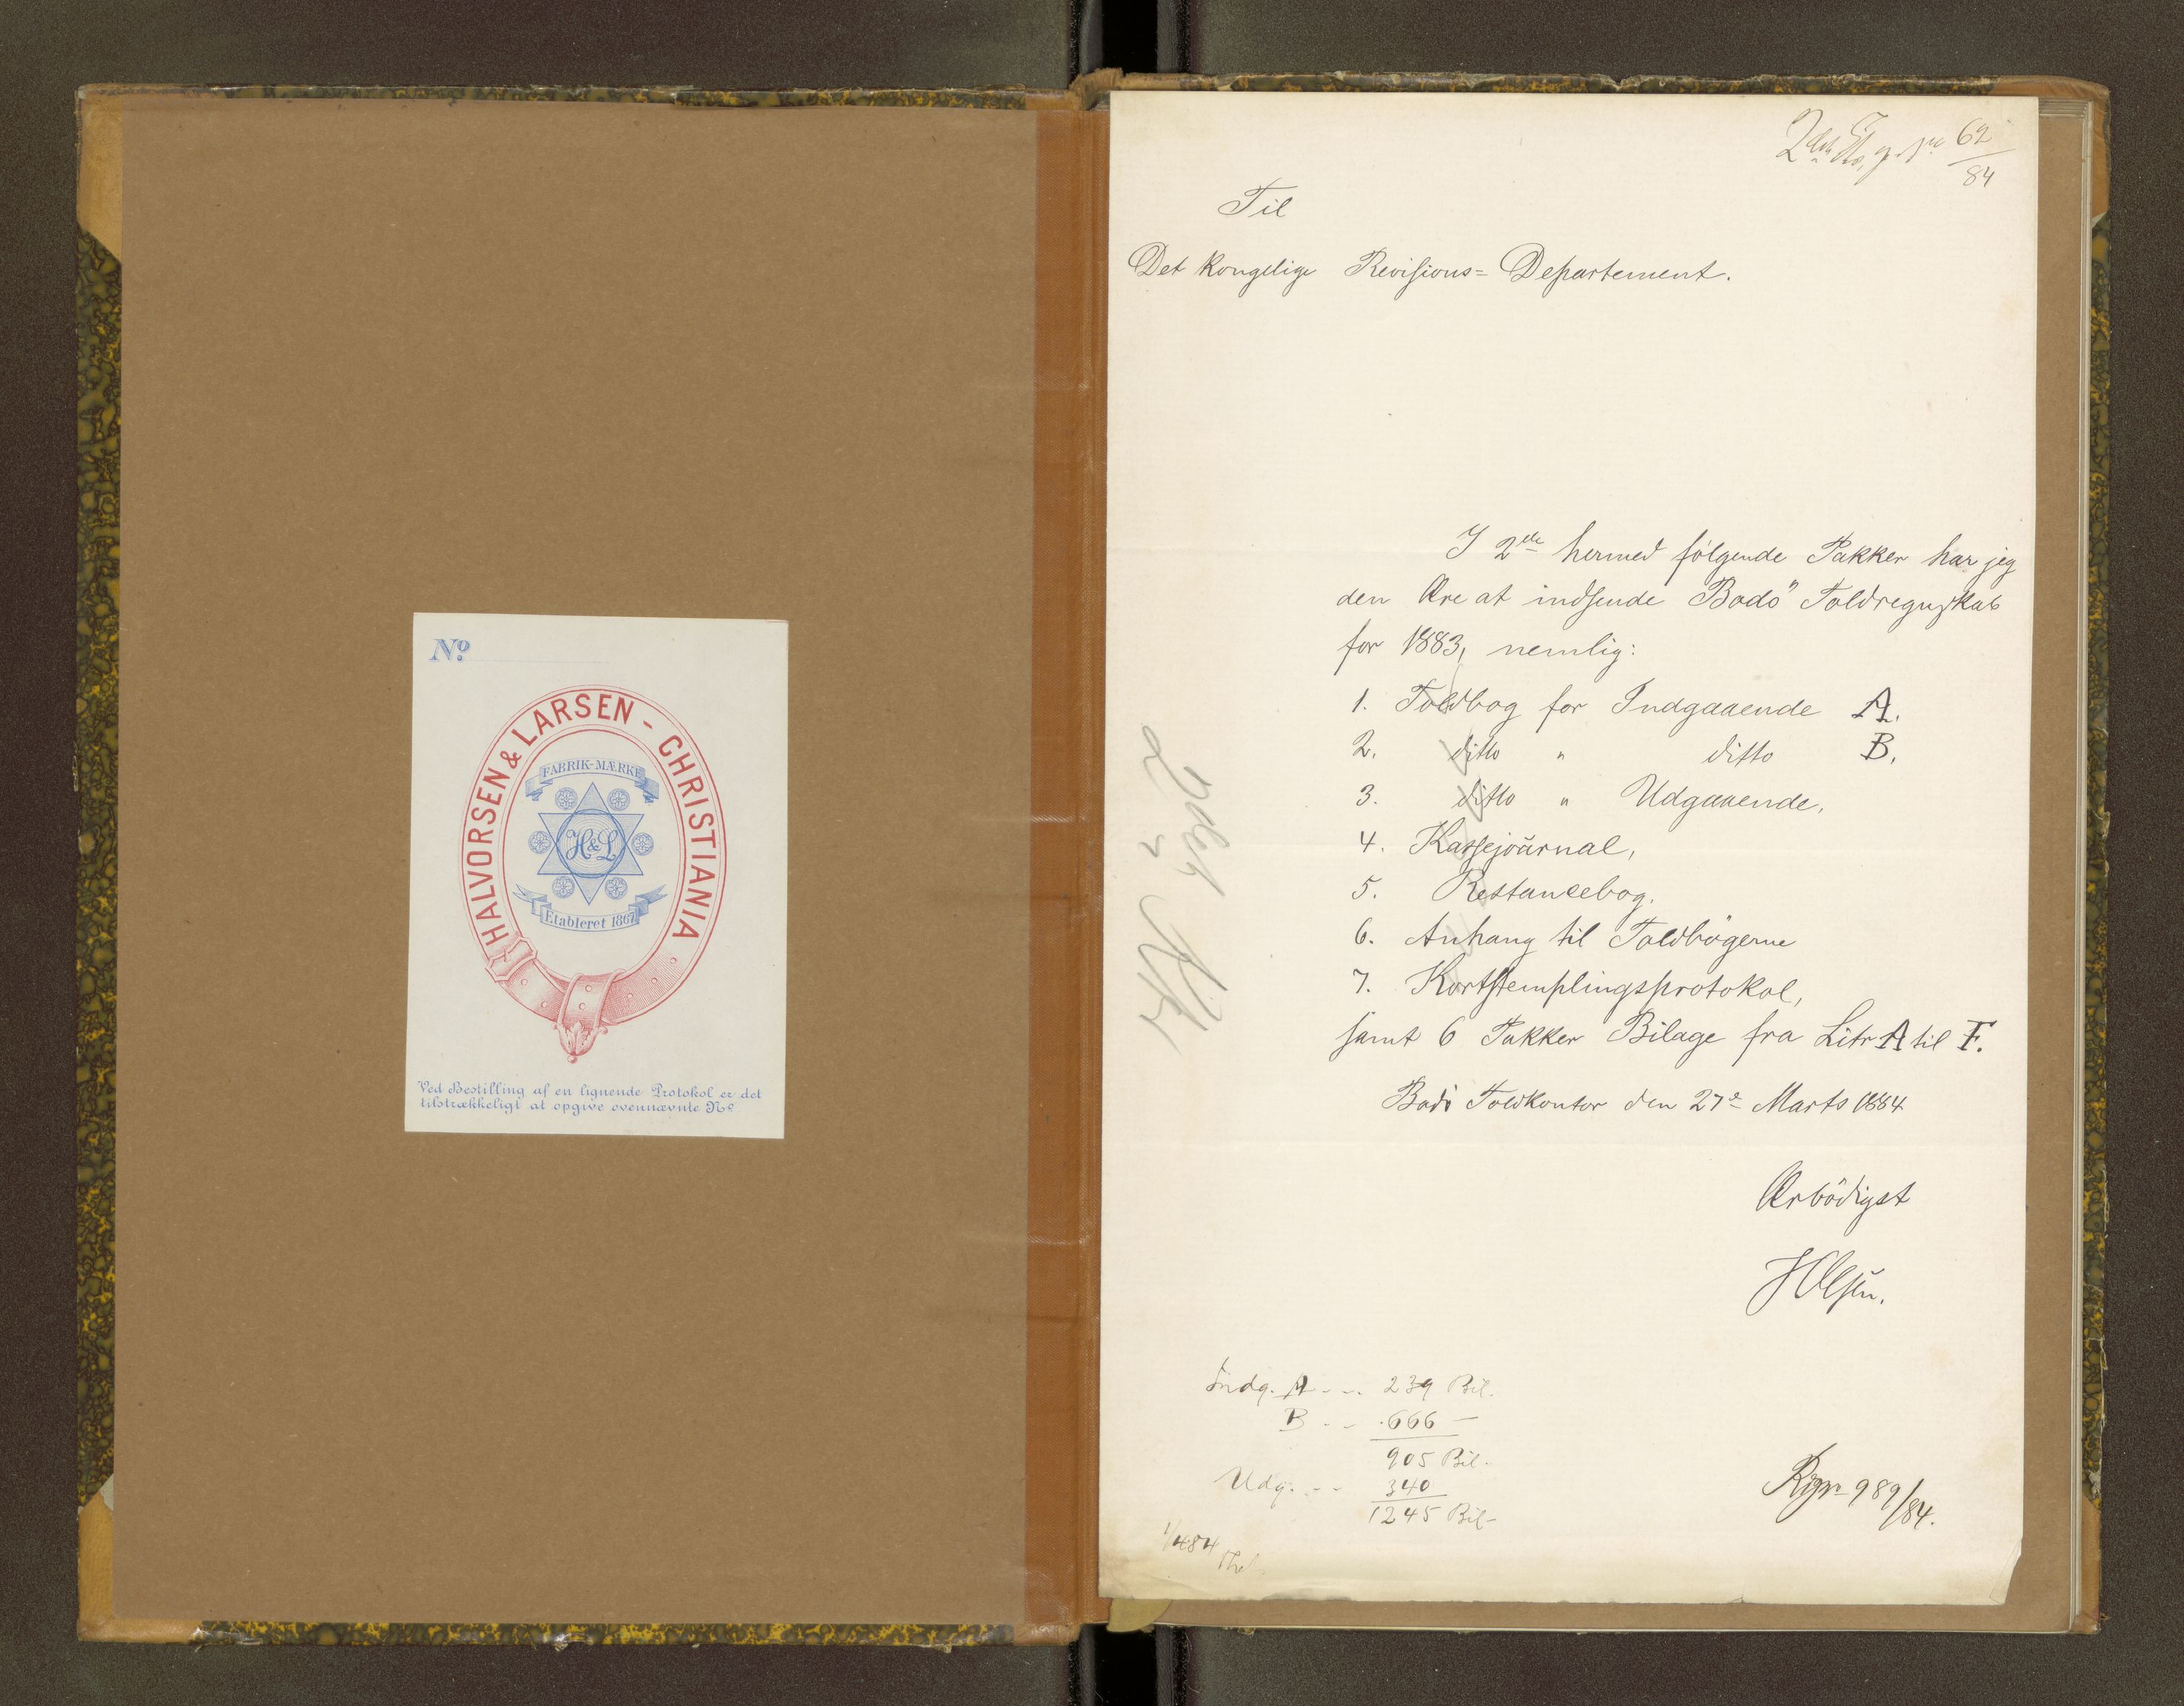 No.
HALVORSEN & LARSEN - CHRISTIANIA
FABRIK-MÆRKE
H&L
Etableret 1867
Ved Bestilling af en lignende Protokol er det
tilstrækkeligt at opgive ovennævnte No.
62/84
Til
Det kongelige Revisions=Departement.
I 2de hermed følgende Pakker har jeg
den Ære at indsende Bodö Toldregnskab
for 1883, nemlig:
1. Toldbog for Indgaaende A.
2. ditto " ditto B.
3. ditto " Udgaaende.
4. Kassejournal,
5. Restancebog.
6. Anhang til Toldbögerne
7. Kortstemplingsprotokol,
samt 6 Pakker Bilage fra Litr A til F.
Bodö Toldkontor den 27de Marts 1884
Ærbödigst
HOlsen.
Indg. A - - - 239 Bil.
B - - 666 —
905 Bil.
Udg. - - 340
1245 Bil.
989/84.
1/4 84